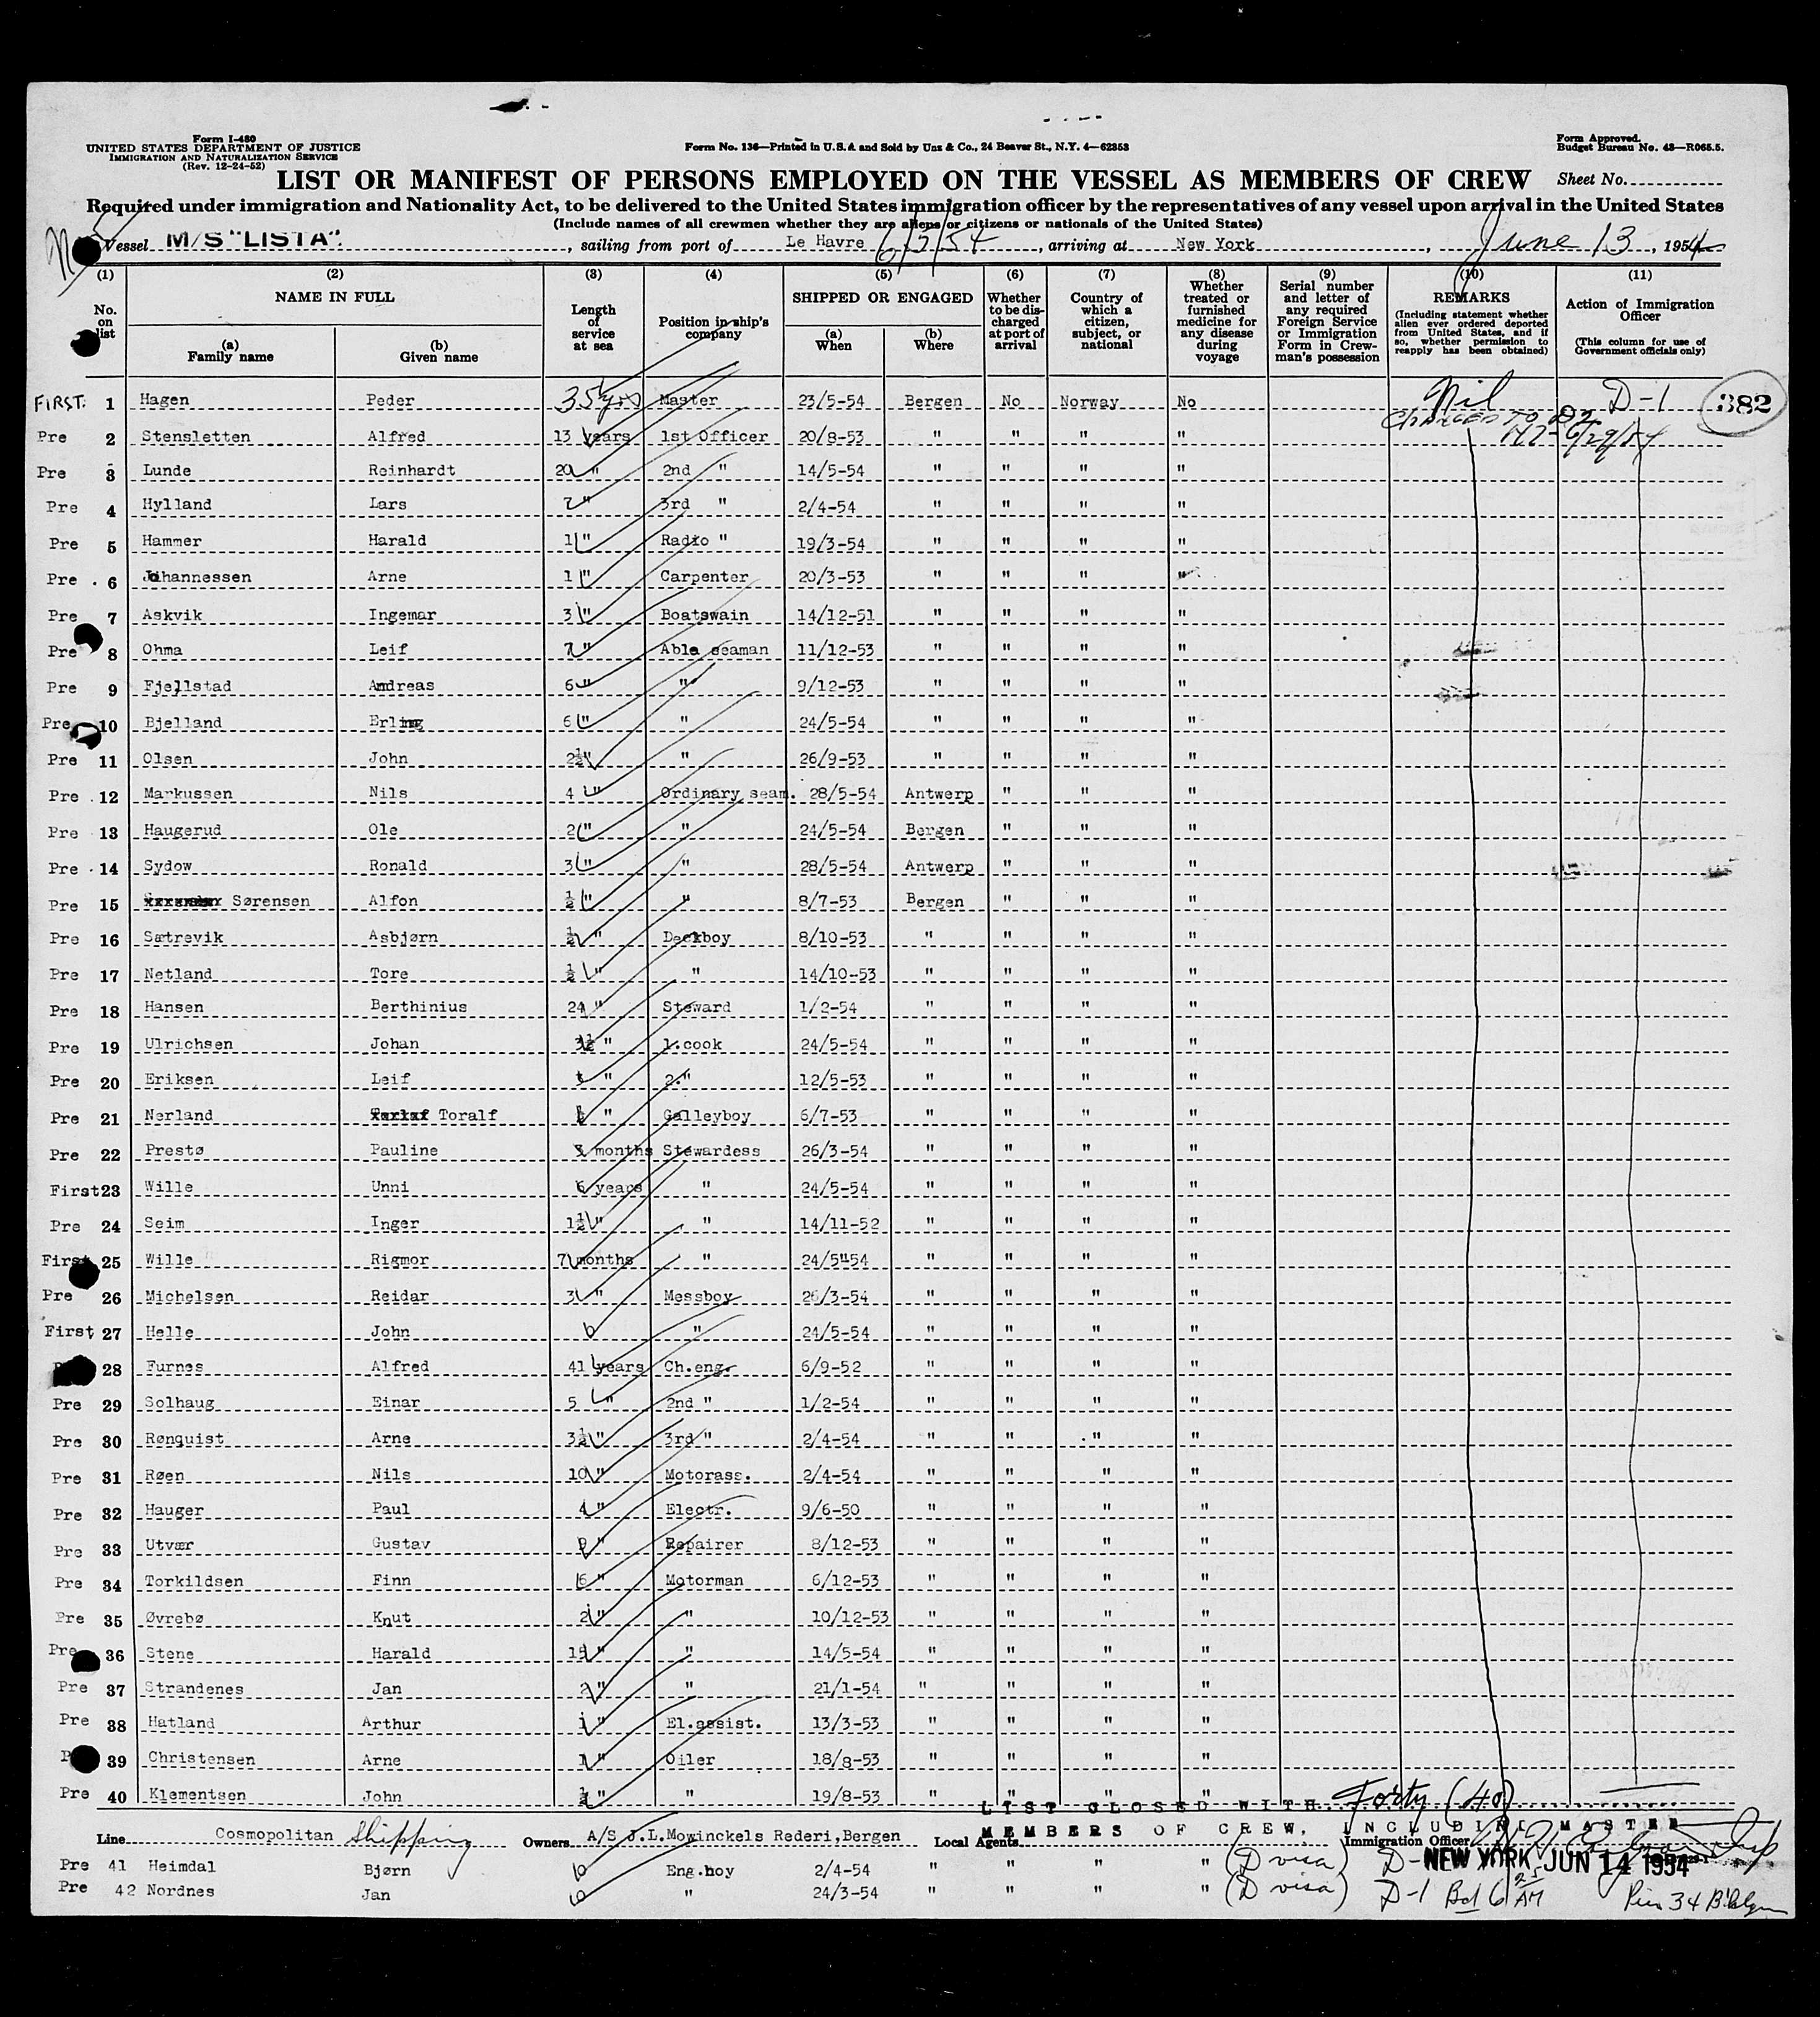 Form I-480
UNITED STATES DEPARTMENT OF JUSTICE
IMMIGRATION AND NATURALIZATION SERVICE
(Rev. 12-24-52)
Form No. 136—Printed in U.S.A and Sold by Unz & Co., 24 Beaver St., N.Y. 4—62353
Form Approved.
Budget Bureau No. 43—R065.5.
LIST OR MANIFEST OF PERSONS EMPLOYED ON THE VESSEL AS MEMBERS OF CREW Sheet No.
Required under immigration and Nationality Act, to be delivered to the United States immigration officer by the representatives of any vessel upon arrival in the United States
(Include names of all crewmen whether they are aliens or citizens or nationals of the United States)
Vessel M/S "LISTA", sailing from port of Le Havre 6/5/54, arriving at New York, June 13, 1954
(1) (2) (3) (4) (5) (6) (7) (8) (9) (10) (11)
No. on list
NAME IN FULL
(a) Family name
(b) Given name
Length of service at sea
Position in ship's company
SHIPPED OR ENGAGED
(a) When
(b) Where
Whether to be discharged at port of arrival
Country of which a citizen, subject, or national
Whether treated or furnished medicine for any disease during voyage
Serial number and letter of any required Foreign Service or Immigration Form in Crewman's possession
REMARKS
(Including statement whether alien ever ordered deported from United States, and if so, whether permission to reapply has been obtained)
Action of Immigration Officer
(This column for use of Government officials only)
FIRST: 1 Hagen Peder 35 yrs Master 23/5-54 Bergen No Norway No Nil D-1 382
CHANGED TO D2
Pre 2 Stensletten Alfred 13 years 1st Officer 20/8-53 " " " " 6/29/54
Pre 3 Lunde Reinhardt 20 " 2nd " 14/5-54 " " " "
Pre 4 Hylland Lars 7 " 3rd " 2/4-54 " " " "
Pre 5 Hammer Harald 1 " Radio " 19/3-54 " " " "
Pre 6 Johannessen Arne 1 " Carpenter 20/3-53 " " " "
Pre 7 Askvik Ingemar 3 " Boatswain 14/12-51 " " " "
Pre 8 Ohma Leif 7 " Able seaman 11/12-53 " " " "
Pre 9 Fjellstad Andreas 6 " " 9/12-53 " " " "
Pre 10 Bjelland Erling 6 " " 24/5-54 " " " "
Pre 11 Olsen John 2½ " " 26/9-53 " " " "
Pre 12 Markussen Nils 4 " Ordinary seam. 28/5-54 Antwerp " " "
Pre 13 Haugerud Ole 2 " " 24/5-54 Bergen " " "
Pre 14 Sydow Ronald 3 " " 28/5-54 Antwerp " " "
Pre 15 Sørensen Alfon ½ " " 8/7-53 Bergen " " "
Pre 16 Sætrevik Asbjørn ½ " Deckboy 8/10-53 " " " "
Pre 17 Netland Tore ½ " " 14/10-53 " " " "
Pre 18 Hansen Berthinius 24 " Steward 1/2-54 " " " "
Pre 19 Ulrichsen Johan 3½ " 1.cook 24/5-54 " " " "
Pre 20 Eriksen Leif " 2." 12/5-53 " " " "
Pre 21 Nerland Toralf " Galleyboy 6/7-53 " " " "
Pre 22 Prestø Pauline 3 months Stewardess 26/3-54 " " " "
First 23 Wille Unni 6 years " 24/5-54 " " " "
Pre 24 Seim Inger 1½ " " 14/11-52 " " " "
First 25 Wille Rigmor 7 months " 24/5-54 " " " "
Pre 26 Michelsen Reidar 3 " Messboy 26/3-54 " " " "
First 27 Helle John " 24/5-54 " " " "
28 Furnes Alfred 41 years Ch.eng. 6/9-52 " " " "
Pre 29 Solhaug Einar 5 " 2nd " 1/2-54 " " " "
Pre 30 Rønquist Arne 3½ " 3rd " 2/4-54 " " " "
Pre 31 Røen Nils 10 " Motorass. 2/4-54 " " " "
Pre 32 Hauger Paul 4 " Electr. 9/6-50 " " " "
Pre 33 Utvær Gustav 9 " Repairer 8/12-53 " " " "
Pre 34 Torkildsen Finn 6 " Motorman 6/12-53 " " " "
Pre 35 Øvrebø Knut 2 " " 10/12-53 " " " "
Pre 36 Stene Harald 15 " " 14/5-54 " " " "
Pre 37 Strandenes Jan 2 " " 21/1-54 " " " "
Pre 38 Hatland Arthur 1 " El.assist. 13/3-53 " " " "
39 Christensen Arne 1 " Oiler 18/8-53 " " " "
Pre 40 Klementsen John ½ " " 19/8-53 " " " "
LIST CLOSED WITH Forty (40)
MEMBERS OF CREW, INCLUDING MASTER
Line Cosmopolitan Shipping Owners A/S J.L.Mowinckels Rederi, Bergen Local Agents Immigration Officer
Pre 41 Heimdal Bjørn Eng.boy 2/4-54 " " " " (D visa) D-
NEW YORK, JUN 14 1954
Pre 42 Nordnes Jan " 24/3-54 " " " " (D visa) D-1 Bd 6 25 AM Pier 34 B'klyn